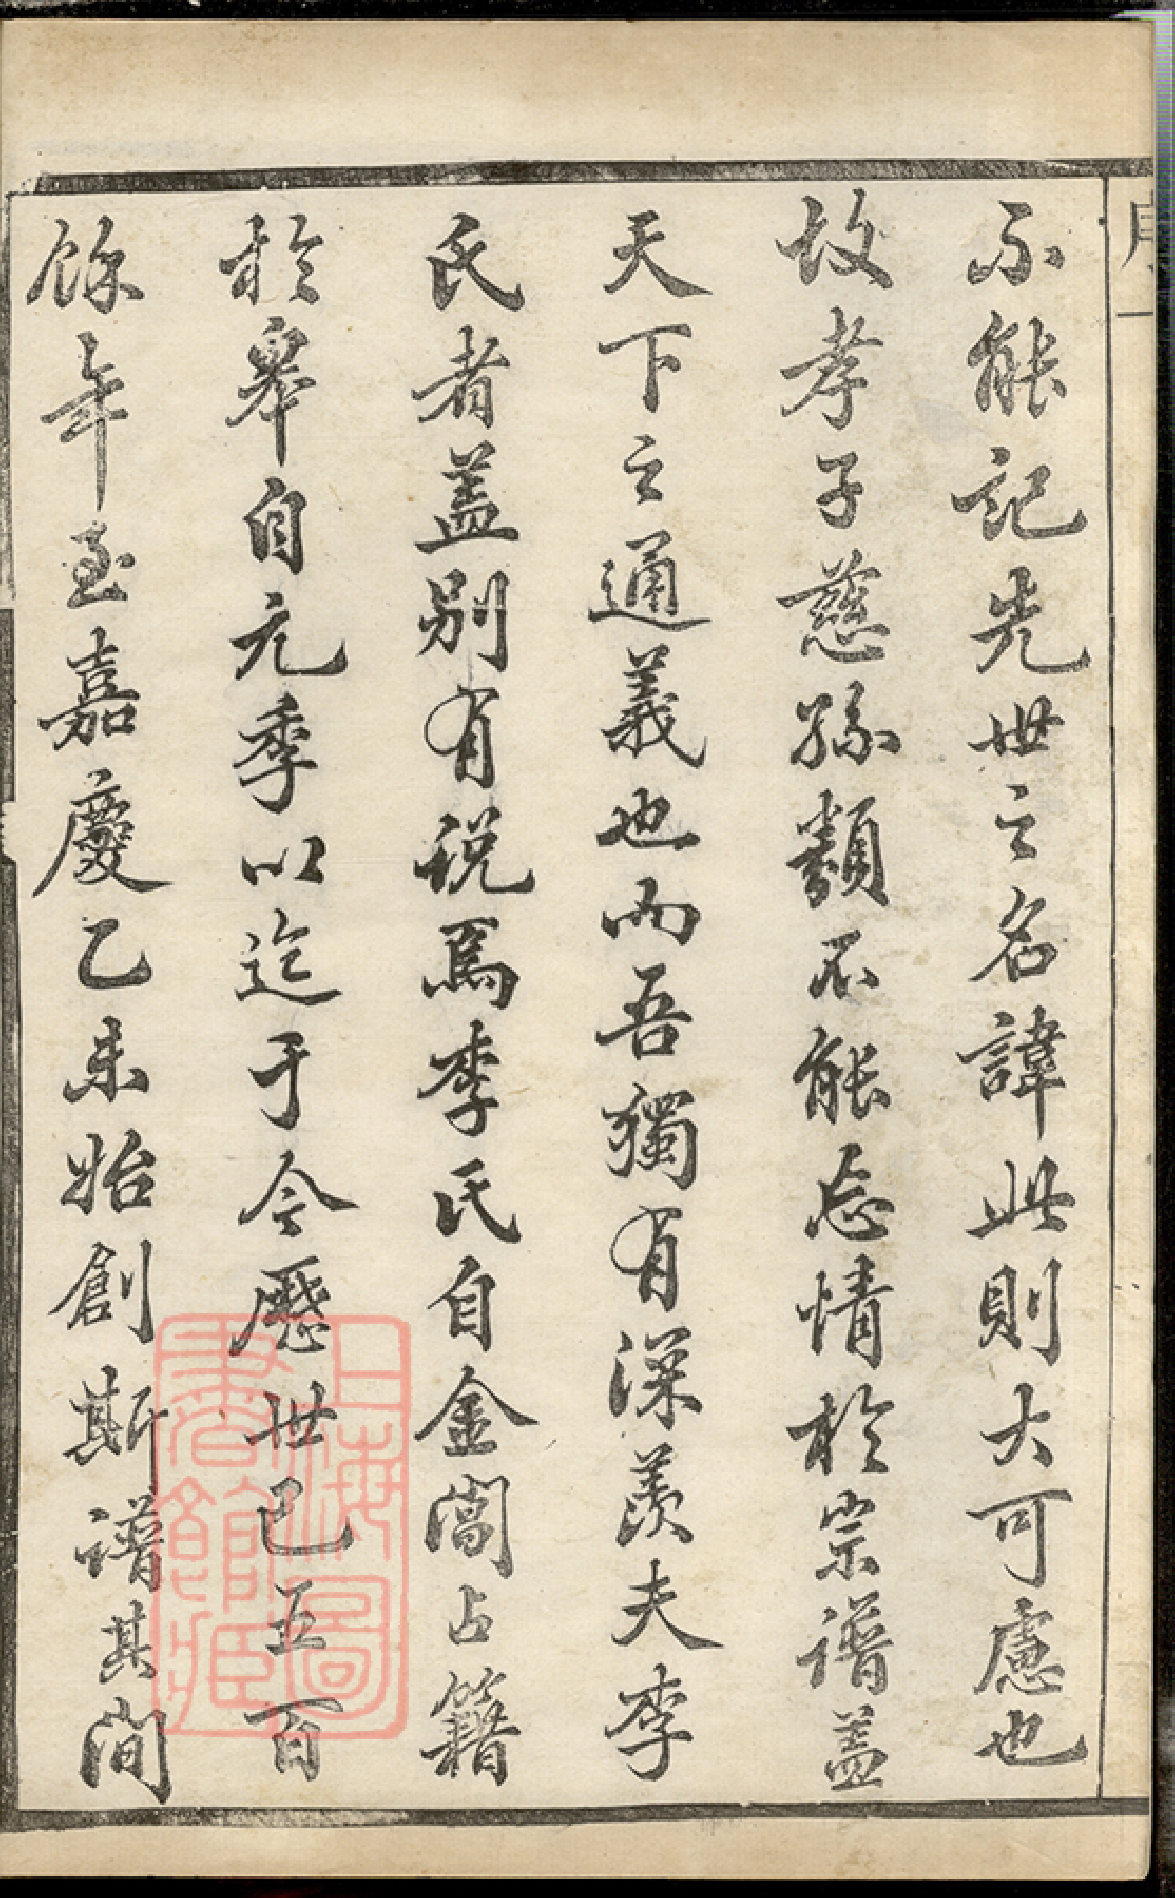 序
一
不能記先世之名諱此則大可慮也
故孝子慈孫類不能忘情於宗譜蓋
天下之通義也而吾獨有深羨夫李
氏者蓋別有說焉李氏自金閶占籍
於皋自元季以迄于今歷世已五百
餘年至嘉慶乙未始創斯譜其間
上海圖
書館藏